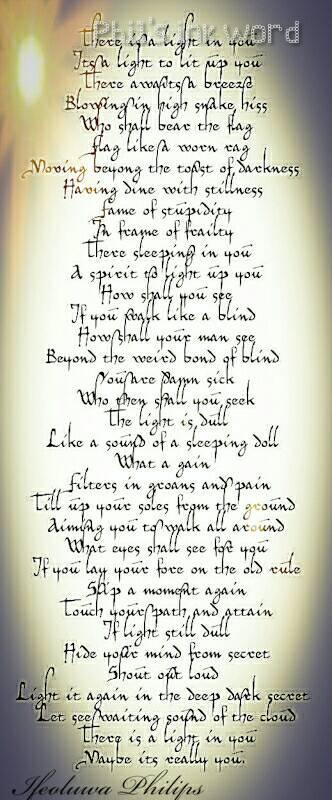 Phil's ink word
There is a light in you
Its a light to lit up you
There awaits a breeze
Blowing in high snake hiss
Who shall bear the flag
flag like a worn rag
Moving beyong the toast of darkness
Having dine with stillness
fame of stupidity
In frame of frailty
There sleeping in you
A spirit to light up you
How shall you see
If you walk like a blind
How shall your man see
Beyond the weird bond of blind
You are damn sick
Who then shall you seek
The light is dull
Like a sound of a sleeping doll
What a gain
filters in groans and pain
Till up your soles from the ground
Aiming you to walk all around
What eyes shall see for you
If you lay your fore on the old rule
Skip a moment again
Touch your path and attain
If light still dull
Hide your mind from secret
Shout out loud
Light it again in the deep dark secret
Let see waiting sound of the cloud
There is a light in you
Maybe its really you.
Ifeoluwa Philips